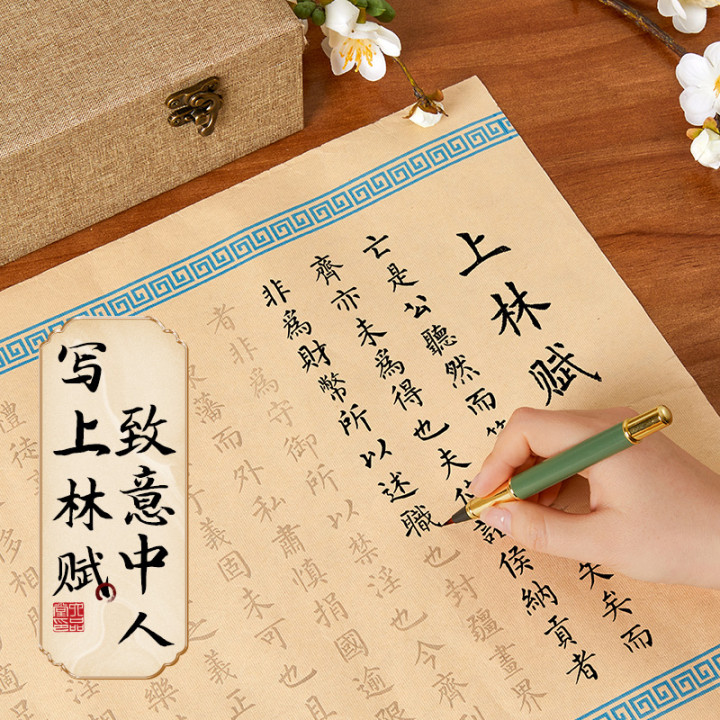 上林赋
亡是公聽然而失矣而
齊亦未為得也夫侯納貢者
非為財幣所以述職也封疆畫界
者非為守御所以禁淫也今齊列
藩而外私肅慎捐國逾限
義固未可也且
義正
禮徒
淫樂
侈相
写上林赋
致意中人